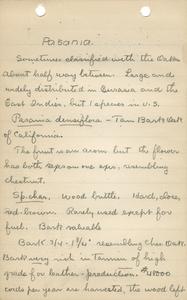 Pasania.
Sometimes classified with the Oaks
about half way between. Large and
widely distributed in Eurasia and the
East Indies, but 1 species in U.S.
Pasania densiflora - Tan Bark Oak
of California.
The fruit is an acorn but the flower
has both sexes on one axis, resembling
chestnut.
Sp. char. Wood brittle. Hard, close,
red-brown. Rarely used except for
fuel. Bark valuable
Bark 3/4 - 1 1/2" resembling Ches. Oak.
Bark very rich in Tannin of high
grade for leather-production.
cords per year are harvested, the wood left